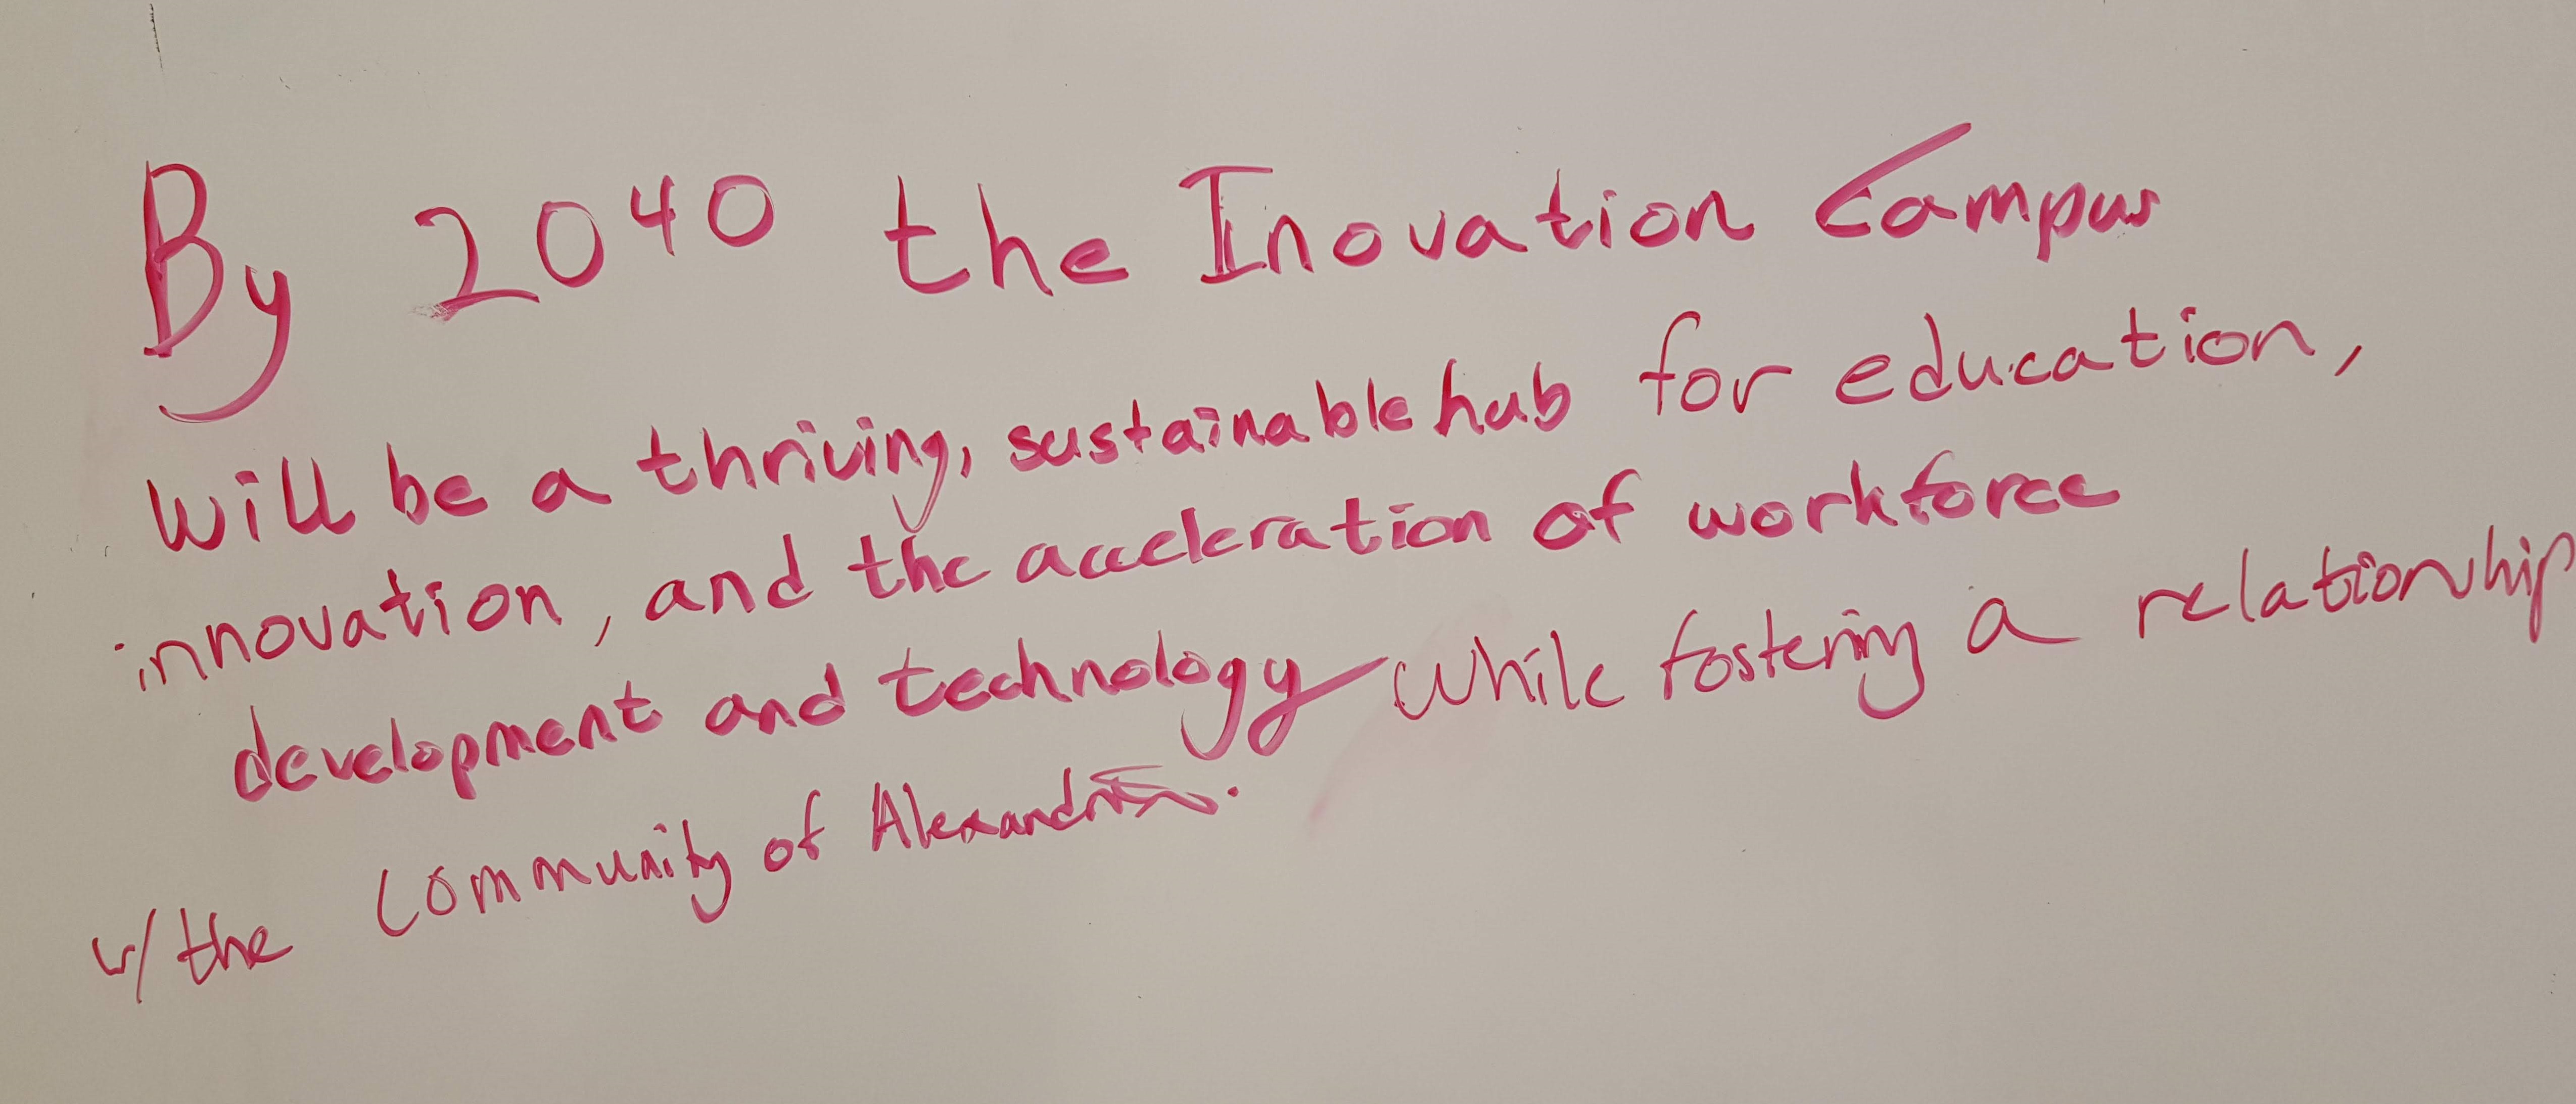 By 2040 the Inovation Campus
will be a thriving, sustainable hub for education,
innovation, and the acceleration of workforce
development and technology while fostering a relationship
w/ the community of Alexandria.